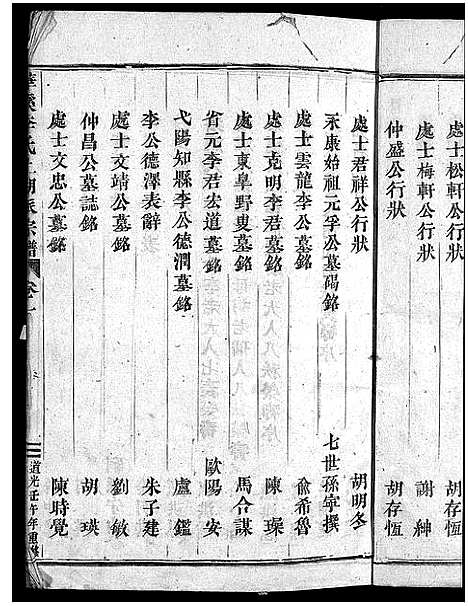 處士松軒公行狀 胡存恆
處士梅軒公行狀 謝紳
仲盛公行狀 胡存恆
處士君祥公行狀 胡明冬
永康始祖元孚公墓碣銘 七世孫寧撰
處士雲龍李公墓銘 俞希魯
處士克明李君墓銘 陳璪
處士東皐野叟墓銘 馬合謀
省元李君宏道墓銘 歐陽安
弋陽知縣李公德潤墓銘 盧鑑
李公德澤表辭 朱子建
處士文靖公墓銘 劉敏
仲昌公墓誌銘 胡瑛
處士文忠公墓銘 陳時覺
氏 派宗譜 卷一
道光壬午年重修